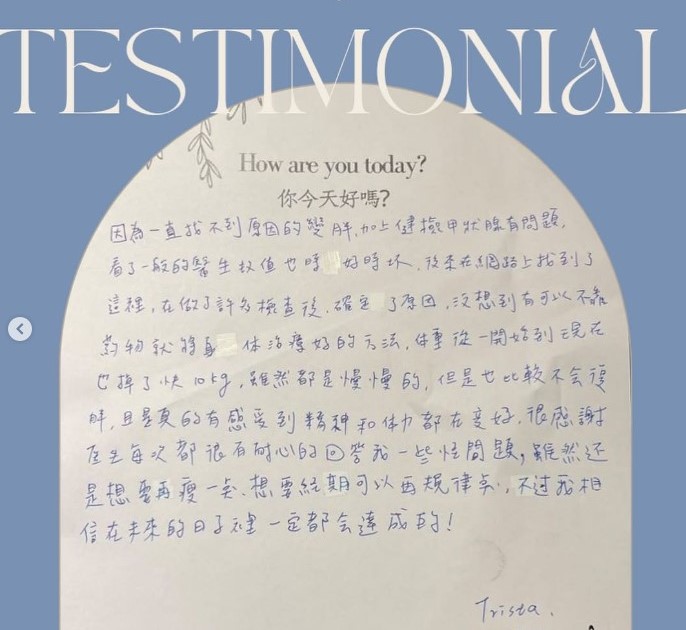 TESTIMONIAL
How are you today?
你今天好嗎?
因為一直找不到原因的變胖,加上健檢甲狀腺有問題,
看了一般的醫生數值也時好時坏,後來在網路上找到了
這裡,在做了許多檢查後,確定了原因,沒想到有可以不靠
药物就將身体治療好的方法,体重從一開始到現在
也掉了快10kg,雖然都是慢慢的,但是也比較不会復
胖,且是真的有感受到精神和体力都在变好,很感謝
医生每次都很有耐心的回答我一些怪問題,雖然还
是想要再瘦一点,想要經期可以再規律点,不过我相
信在未來的日子裡一定都会達成的!
Trista.